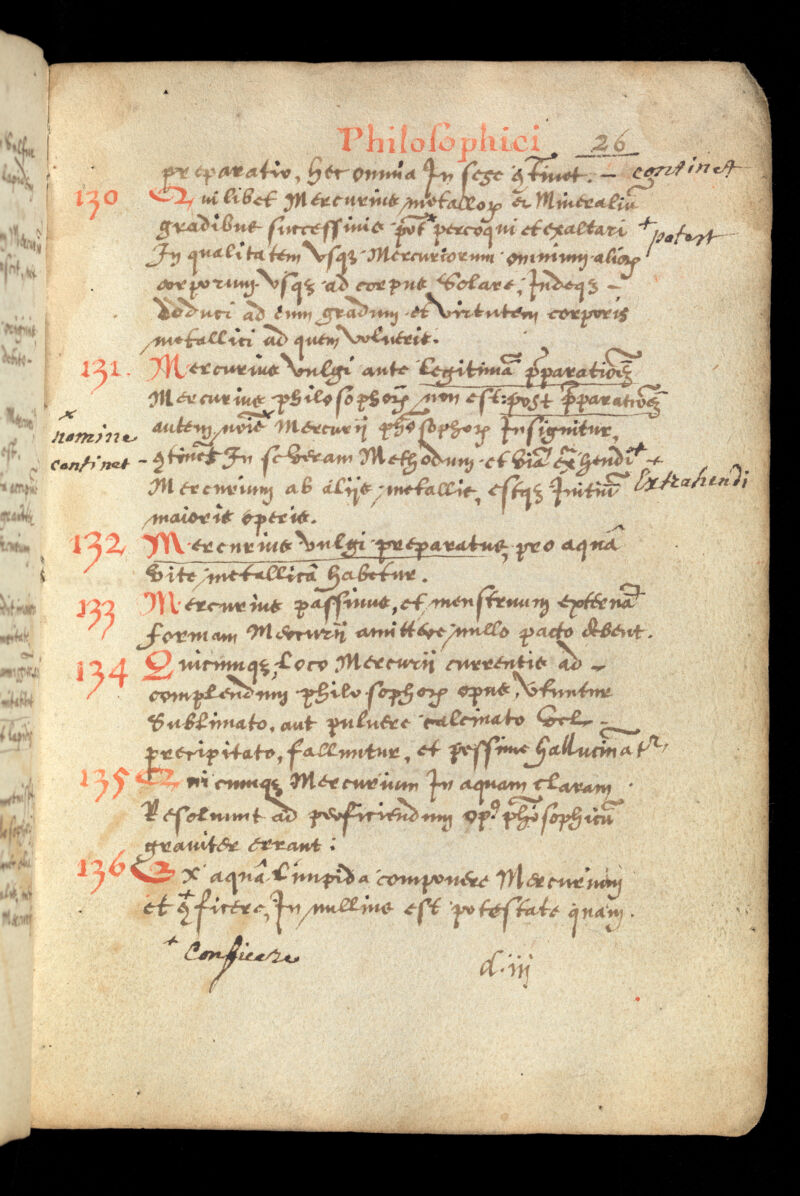 Philosophici 26
preparatio, hec omnia In sese ꝯtinet. – continet
130 Quilibet Mercurius metalloꝝ et Mineraliū
gradibus successiuis pōt + percoqui et exaltari + potest
In qualitatem vsqȝ Mercuriorum omnium alioꝝ
corporum vsqȝ ad corpus Solare, Indeqȝ –
deduci ad eum gradum et virtutem corporis
metallici ad quem volueris.
131. Mercurius vulgi ante legitimā p̄parationē
Mercurius philosophoꝝ non est: post p̄parationē
autem noīe x Mercurij phōsophoꝝ Insignitur, x nomine
– ꝯtinēt In se veram Methodum et viā ex̄hendi + continet + Extrahendi
Mercurium ab alijs metallis, estqȝ Initiū
maioris operis.
132 Mercurius vulgi preparatus, pro aquâ
vite metallicâ habetur.
133 Mercurius passiuus, et menstruum externā
formam Mercurij amittere nullo pacto debent.
134 Quicunqȝ loco Mercurij currentis ad –
complendum philosophoꝝ opus vtuntur
Sublimato, aut puluere calcinato vel –
precipitato, falluntur, et pessime hallucināt᷑
135 Quicunqȝ Mercurium In aquam claram
Resoluunt ad perficiendum opꝰ phōsophicū
grauiter errant :
136 Ex aquâ limpida componere Mercurium
et + ꝯficere, In nullius est potestate quam.
+ Conficere
d.iij